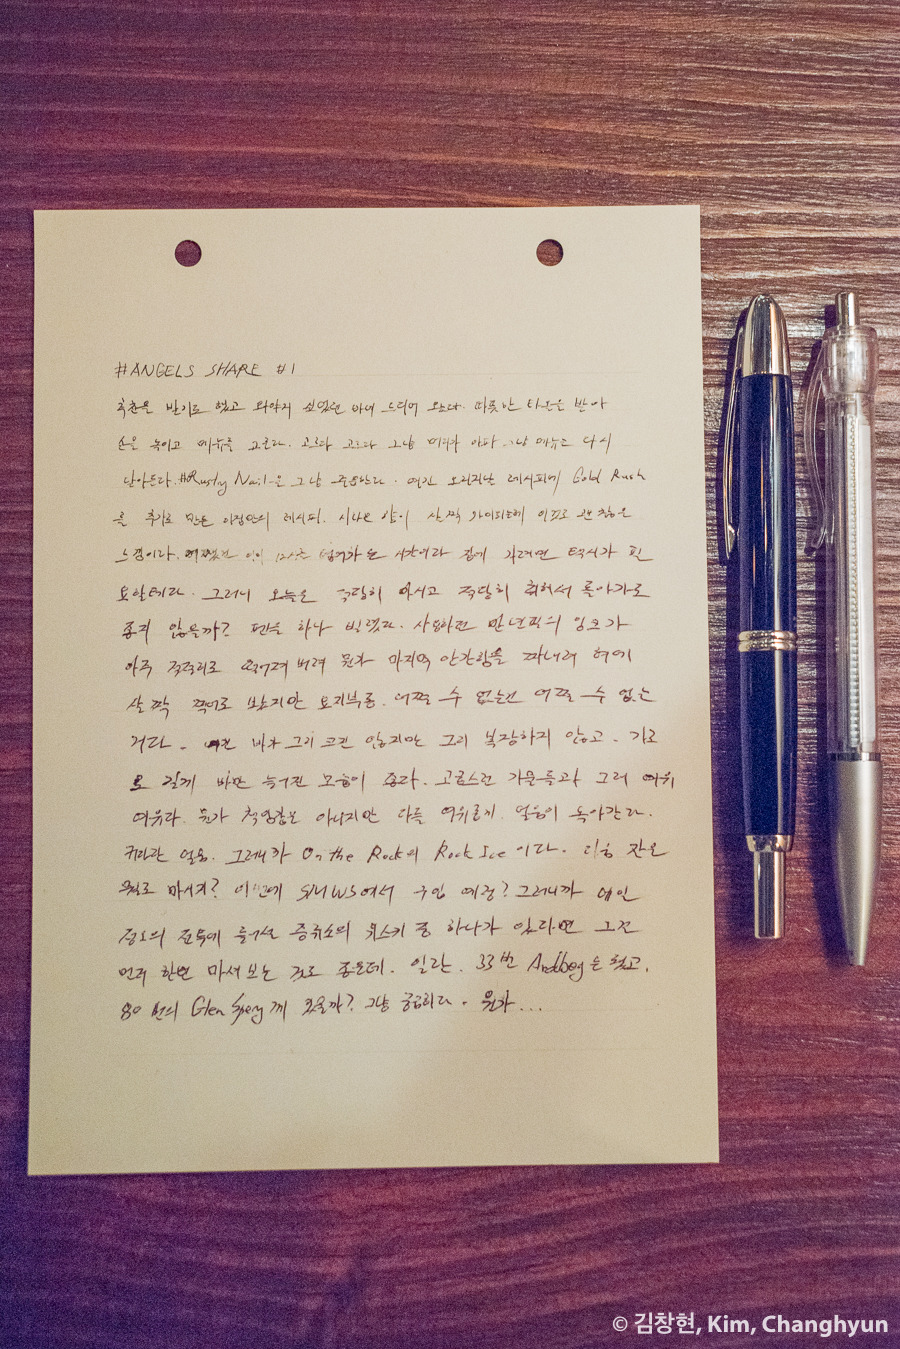 #ANGELS SHARE #1
추천을 받기도 했고 와야지 싶었던 바에 드디어 왔다. 따뜻한 타올을 받아
손을 녹이고 메뉴를 고른다. 고르다 고르다 그냥 머리가 아파 그냥 메뉴는 다시
날아든다. #Rusty Nail은 그냥 주문한다. 여긴 오리지널 레시피에 Gold Rush
를 추가로 만든 이집만의 레시피. 시나몬 향이 살짝 가미되는데 의외로 괜찮은
느낌이다. 어쨌건 이미 12시는 넘겨가는 시간이라 집에 가려면 택시가 필
요할테다. 그러니 오늘은 적당히 마시고 적당히 취해서 돌아가도
좋지 않을까? 펜을 하나 빌렸다. 사용하던 만년필의 잉크가
아주 적적히로 떨어져 버려 뭔가 마지막 안간힘을 짜내려 혀에
살짝 찍어도 보았지만 요지부동. 어쩔 수 없는건 어쩔 수 없는
거다. 여긴 바가 그리 크진 않지만 그리 복잡하지 않고, 가로
로 길게 바만 늘어진 모습이 좋다. 고흐스런 가문들과 그러 여유
여유라. 뭔가 적막감은 아니지만 다들 여유롭지. 얼음이 녹아간다.
커다란 얼음. 그러니까 On the Rock의 Rock Ice 이다. 다음 잔은
뭐로 마시지? 이번에 SMWS에서 구입 예정? 그러니까 메인
정도의 전투에 들어설 증류소의 위스키 중 하나가 있다면 그건
먼저 한번 마셔 보는 것도 좋을텐데. 일단. 33번 Ardbeg은 했고.
80 번의 Glen Spey께 있을까? 그냥 궁금하다. 뭔가...
© 김창현, Kim, Changhyun